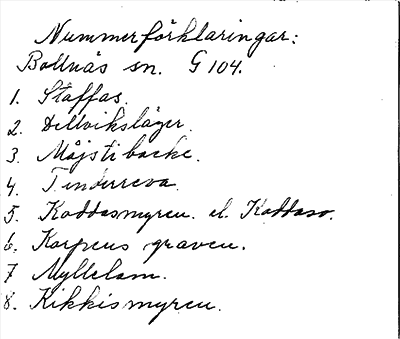 Nummerförklaringar:
Bollnäs sn. G 104.
1. Staffas.
2. Dillviksläger.
3. Måjstibacke.
4. Tinderreva.
5. Koddasmyren. el. Koddaso.
6. Korpens graven.
7 Myllelam.
8. Kikkismyren.